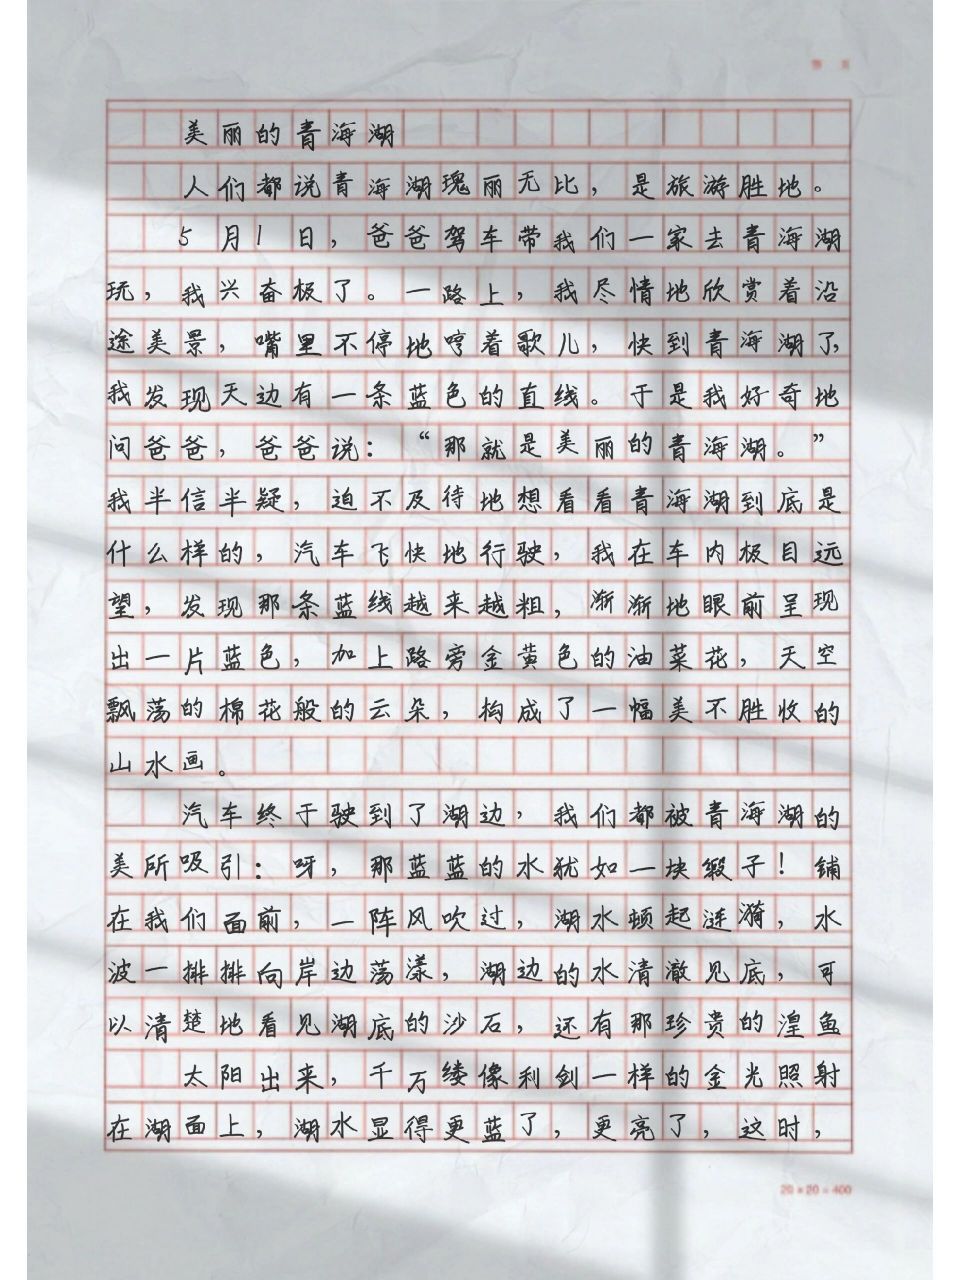 美丽的青海湖
人们都说青海湖瑰丽无比，是旅游胜地。
5月1日，爸爸驾车带我们一家去青海湖
玩，我兴奋极了。一路上，我尽情地欣赏着沿
途美景，嘴里不停地哼着歌儿，快到青海湖了，
我发现天边有一条蓝色的直线。于是我好奇地
问爸爸，爸爸说：“那就是美丽的青海湖。”
我半信半疑，迫不及待地想看看青海湖到底是
什么样的，汽车飞快地行驶，我在车内极目远
望，发现那条蓝线越来越粗，渐渐地眼前呈现
出一片蓝色，加上路旁金黄色的油菜花，天空
飘荡的棉花般的云朵，构成了一幅美不胜收的
山水画。
汽车终于驶到了湖边，我们都被青海湖的
美所吸引：呀，那蓝蓝的水犹如一块缎子！铺
在我们面前，一阵风吹过，湖水顿起涟漪，水
波一排排向岸边荡漾，湖边的水清澈见底，可
以清楚地看见湖底的沙石，还有那珍贵的湟鱼
太阳出来，千万缕像利剑一样的金光照射
在湖面上，湖水显得更蓝了，更亮了，这时，
20×20=400